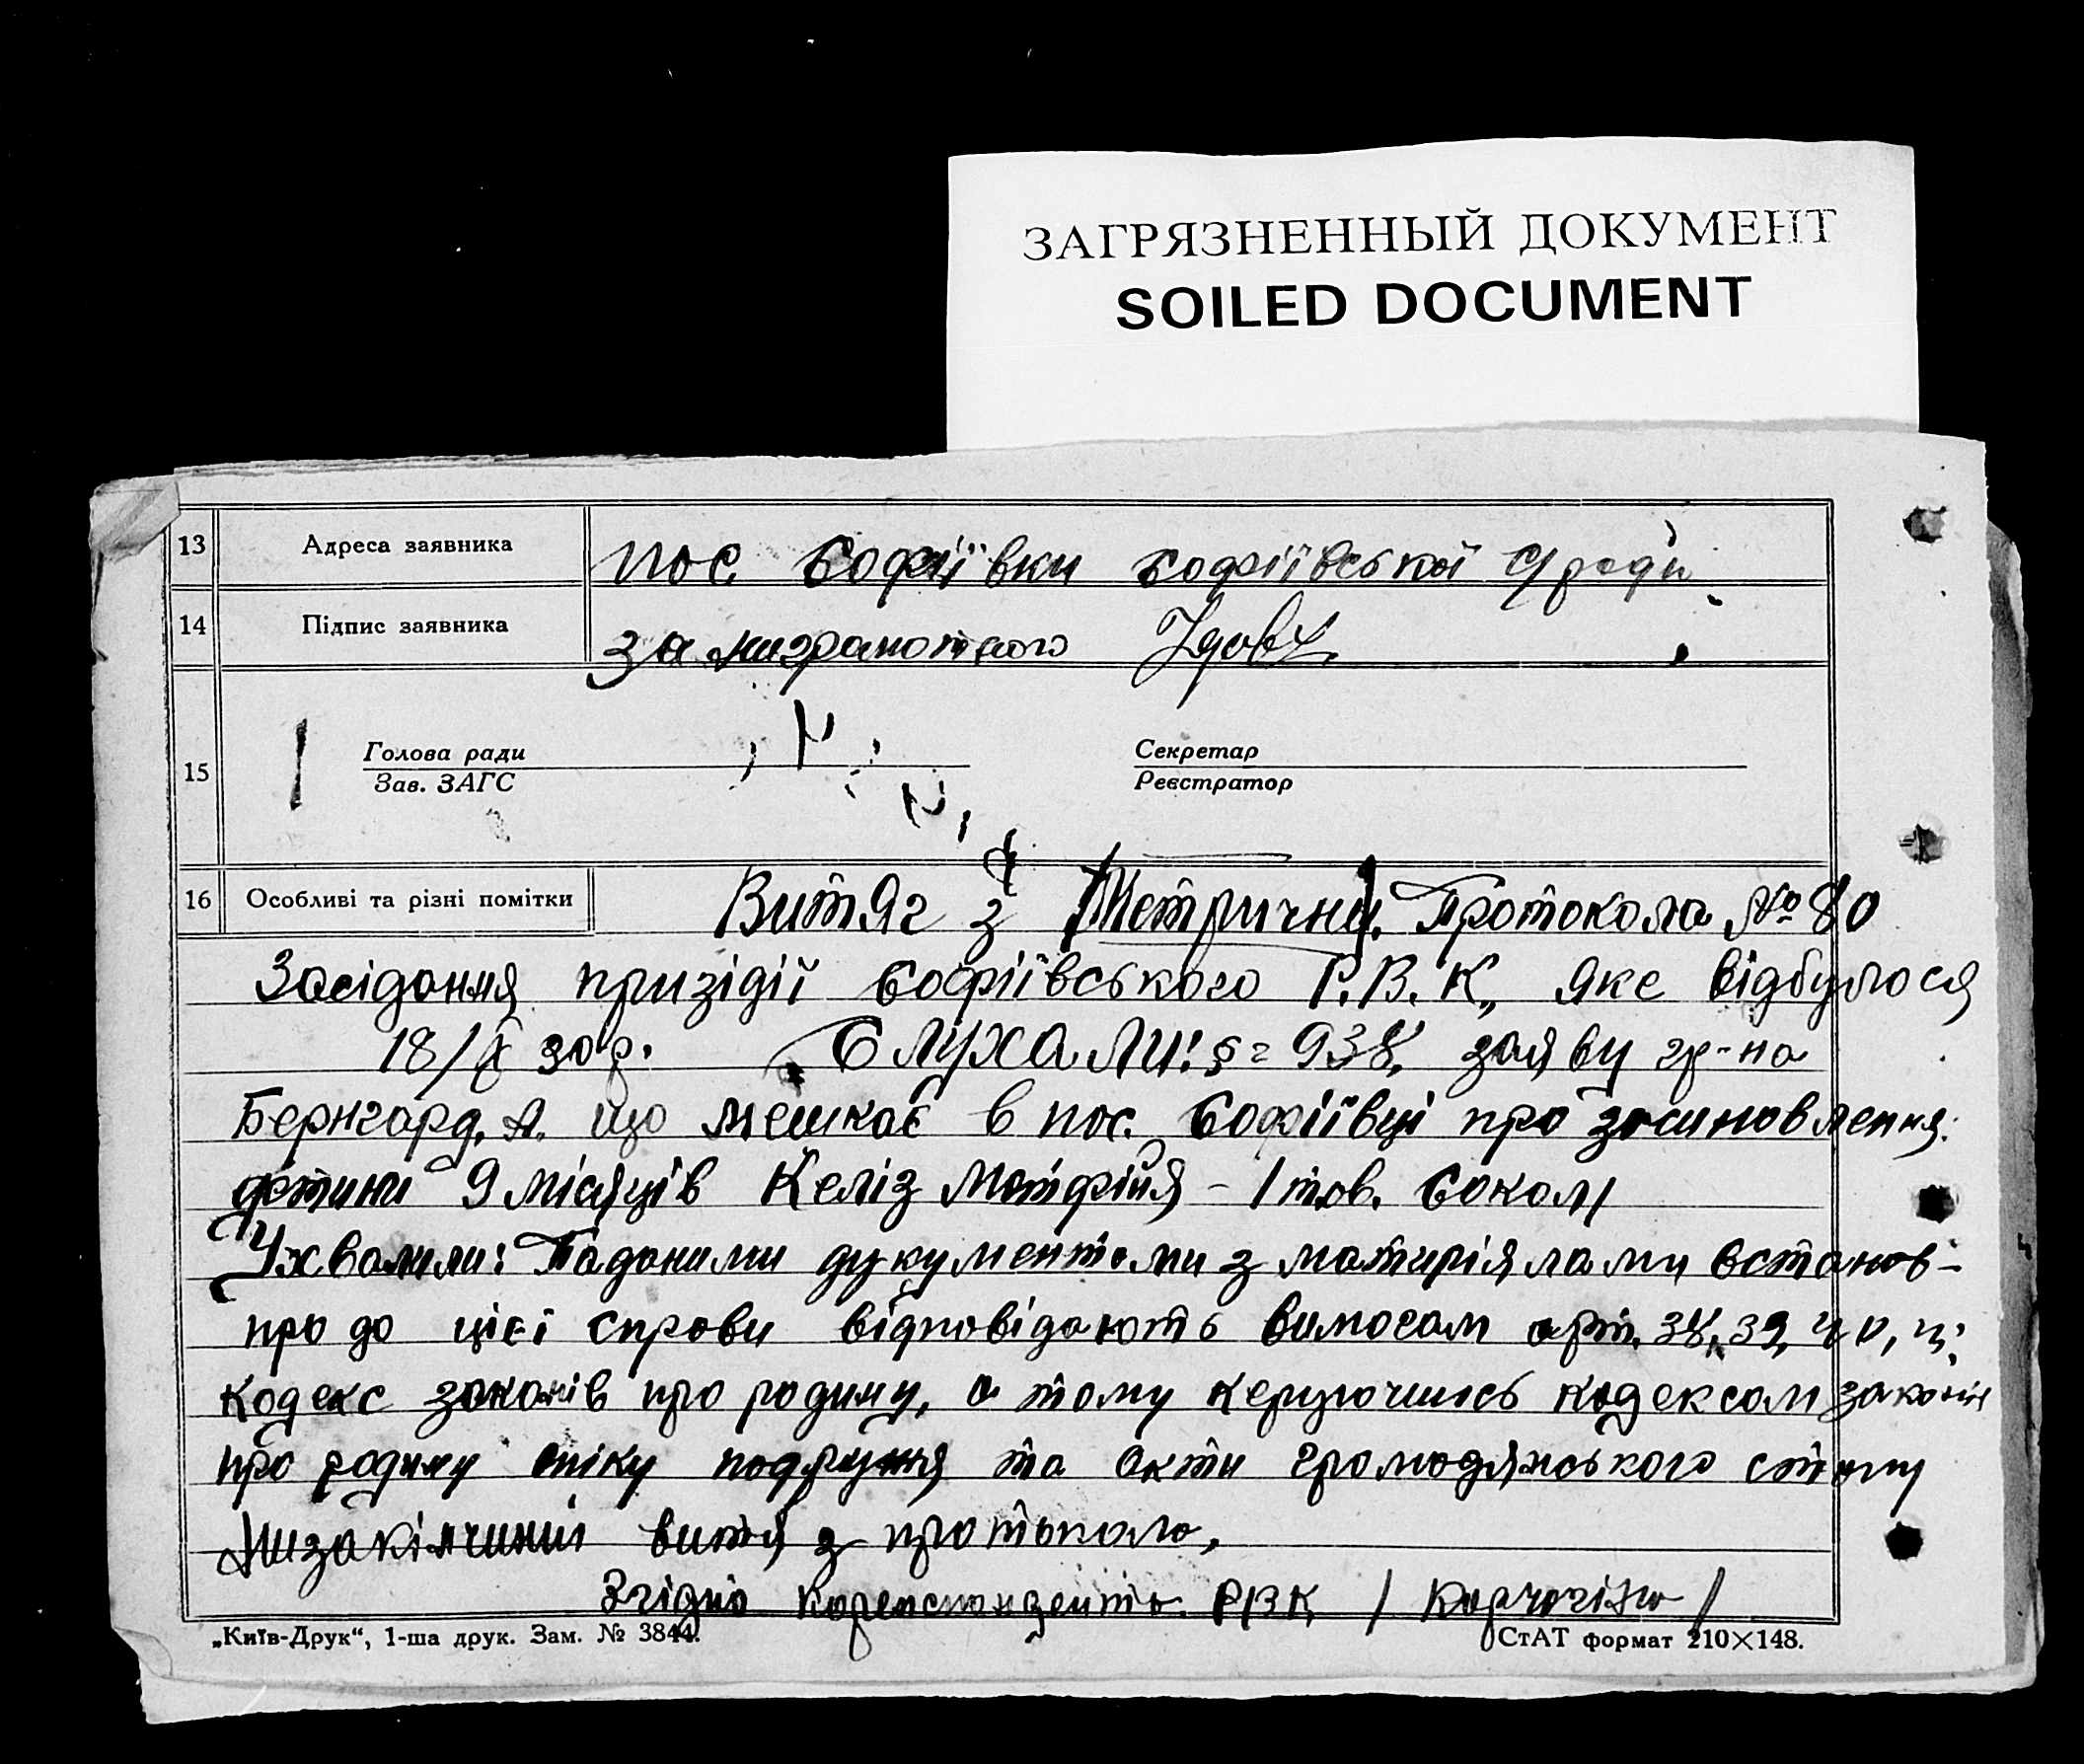 ЗАГРЯЗНЕННЫЙ ДОКУМЕНТ
SOILED DOCUMENT
13 Адреса заявника пос Софіївки Софіївської
14 Підпис заявника за
15 Голова ради Секретар
Зав. ЗАГС Реєстратор
16 Особливі та різні помітки Витяг з [Метрични] Протокола № 80
Засідання призідії Софіївського Р.В.К., яке відбулося
18/X 30 р. СЛУХАЛИ: § = 938, заяву гр-на
Бернгард. А. що мешкає в пос. Софіївці про зосиновлення:
дєтини 9 місяців Келіз Матфійя - /тов. Сокол/
Ухвалили: Паданими дукументоми з матиріялами встанов-
про до цієї справи відповідають вимогам арт. 38, 39, 40,
кодекс законів про родину, а тому керуючись кодексом законів
про родину опіку подружя та акти громодянського стону
витяг з протокола,
Згідно РВК
„Київ-Друк“, 1-ша друк. Зам. № 3844. СтАТ формат 210×148.